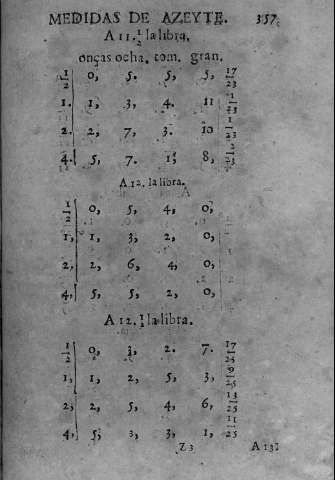 MEDIDAS DE AZEYTE. 357
A 11. 1/2 la libra.
onças ocha. tom. gran.
1/2 0, 5. 5, 5, 17/23
1. 1, 3, 4. 11 1/23
2. 2, 7, 3. 10 1/23
4. 5, 7. 1, 8, 2/23
A 12. la libra.
1/2 0, 5, 4, 0,
1, 1, 3, 2, 0,
2. 2, 6, 4, 0,
4, 5, 5, 2, 0,
A 12. 1/2 la libra.
1/2 0, 3, 2. 7. 17/25
1, 1, 2, 5, 3, 9/25
2, 2, 5, 4, 6, 13/25
4, 5, 3, 3, 1, 11/25
Z 3 A 13.